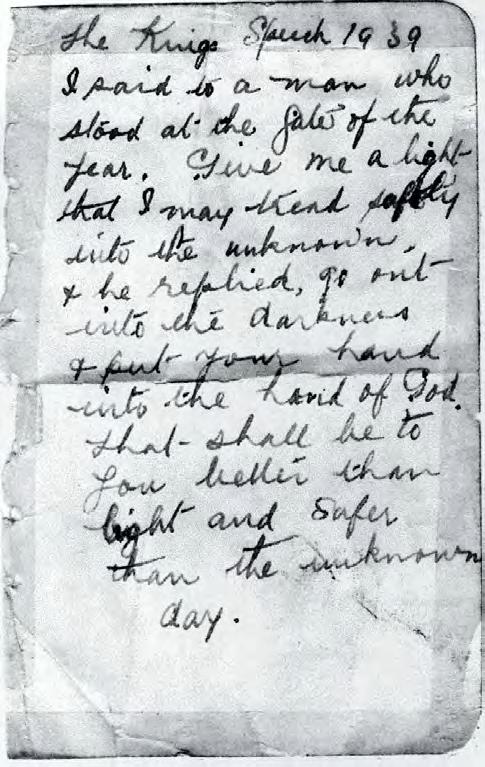 The Kings Speech 1939
I said to a man who
stood at the gate of the
year. Give me a light
that I may tread safely
into the unknown,
& he replied, go out
into the darkness
& put your hand
into the hand of God.
that shall be to
you better than
light and safer
than the unknown
day.